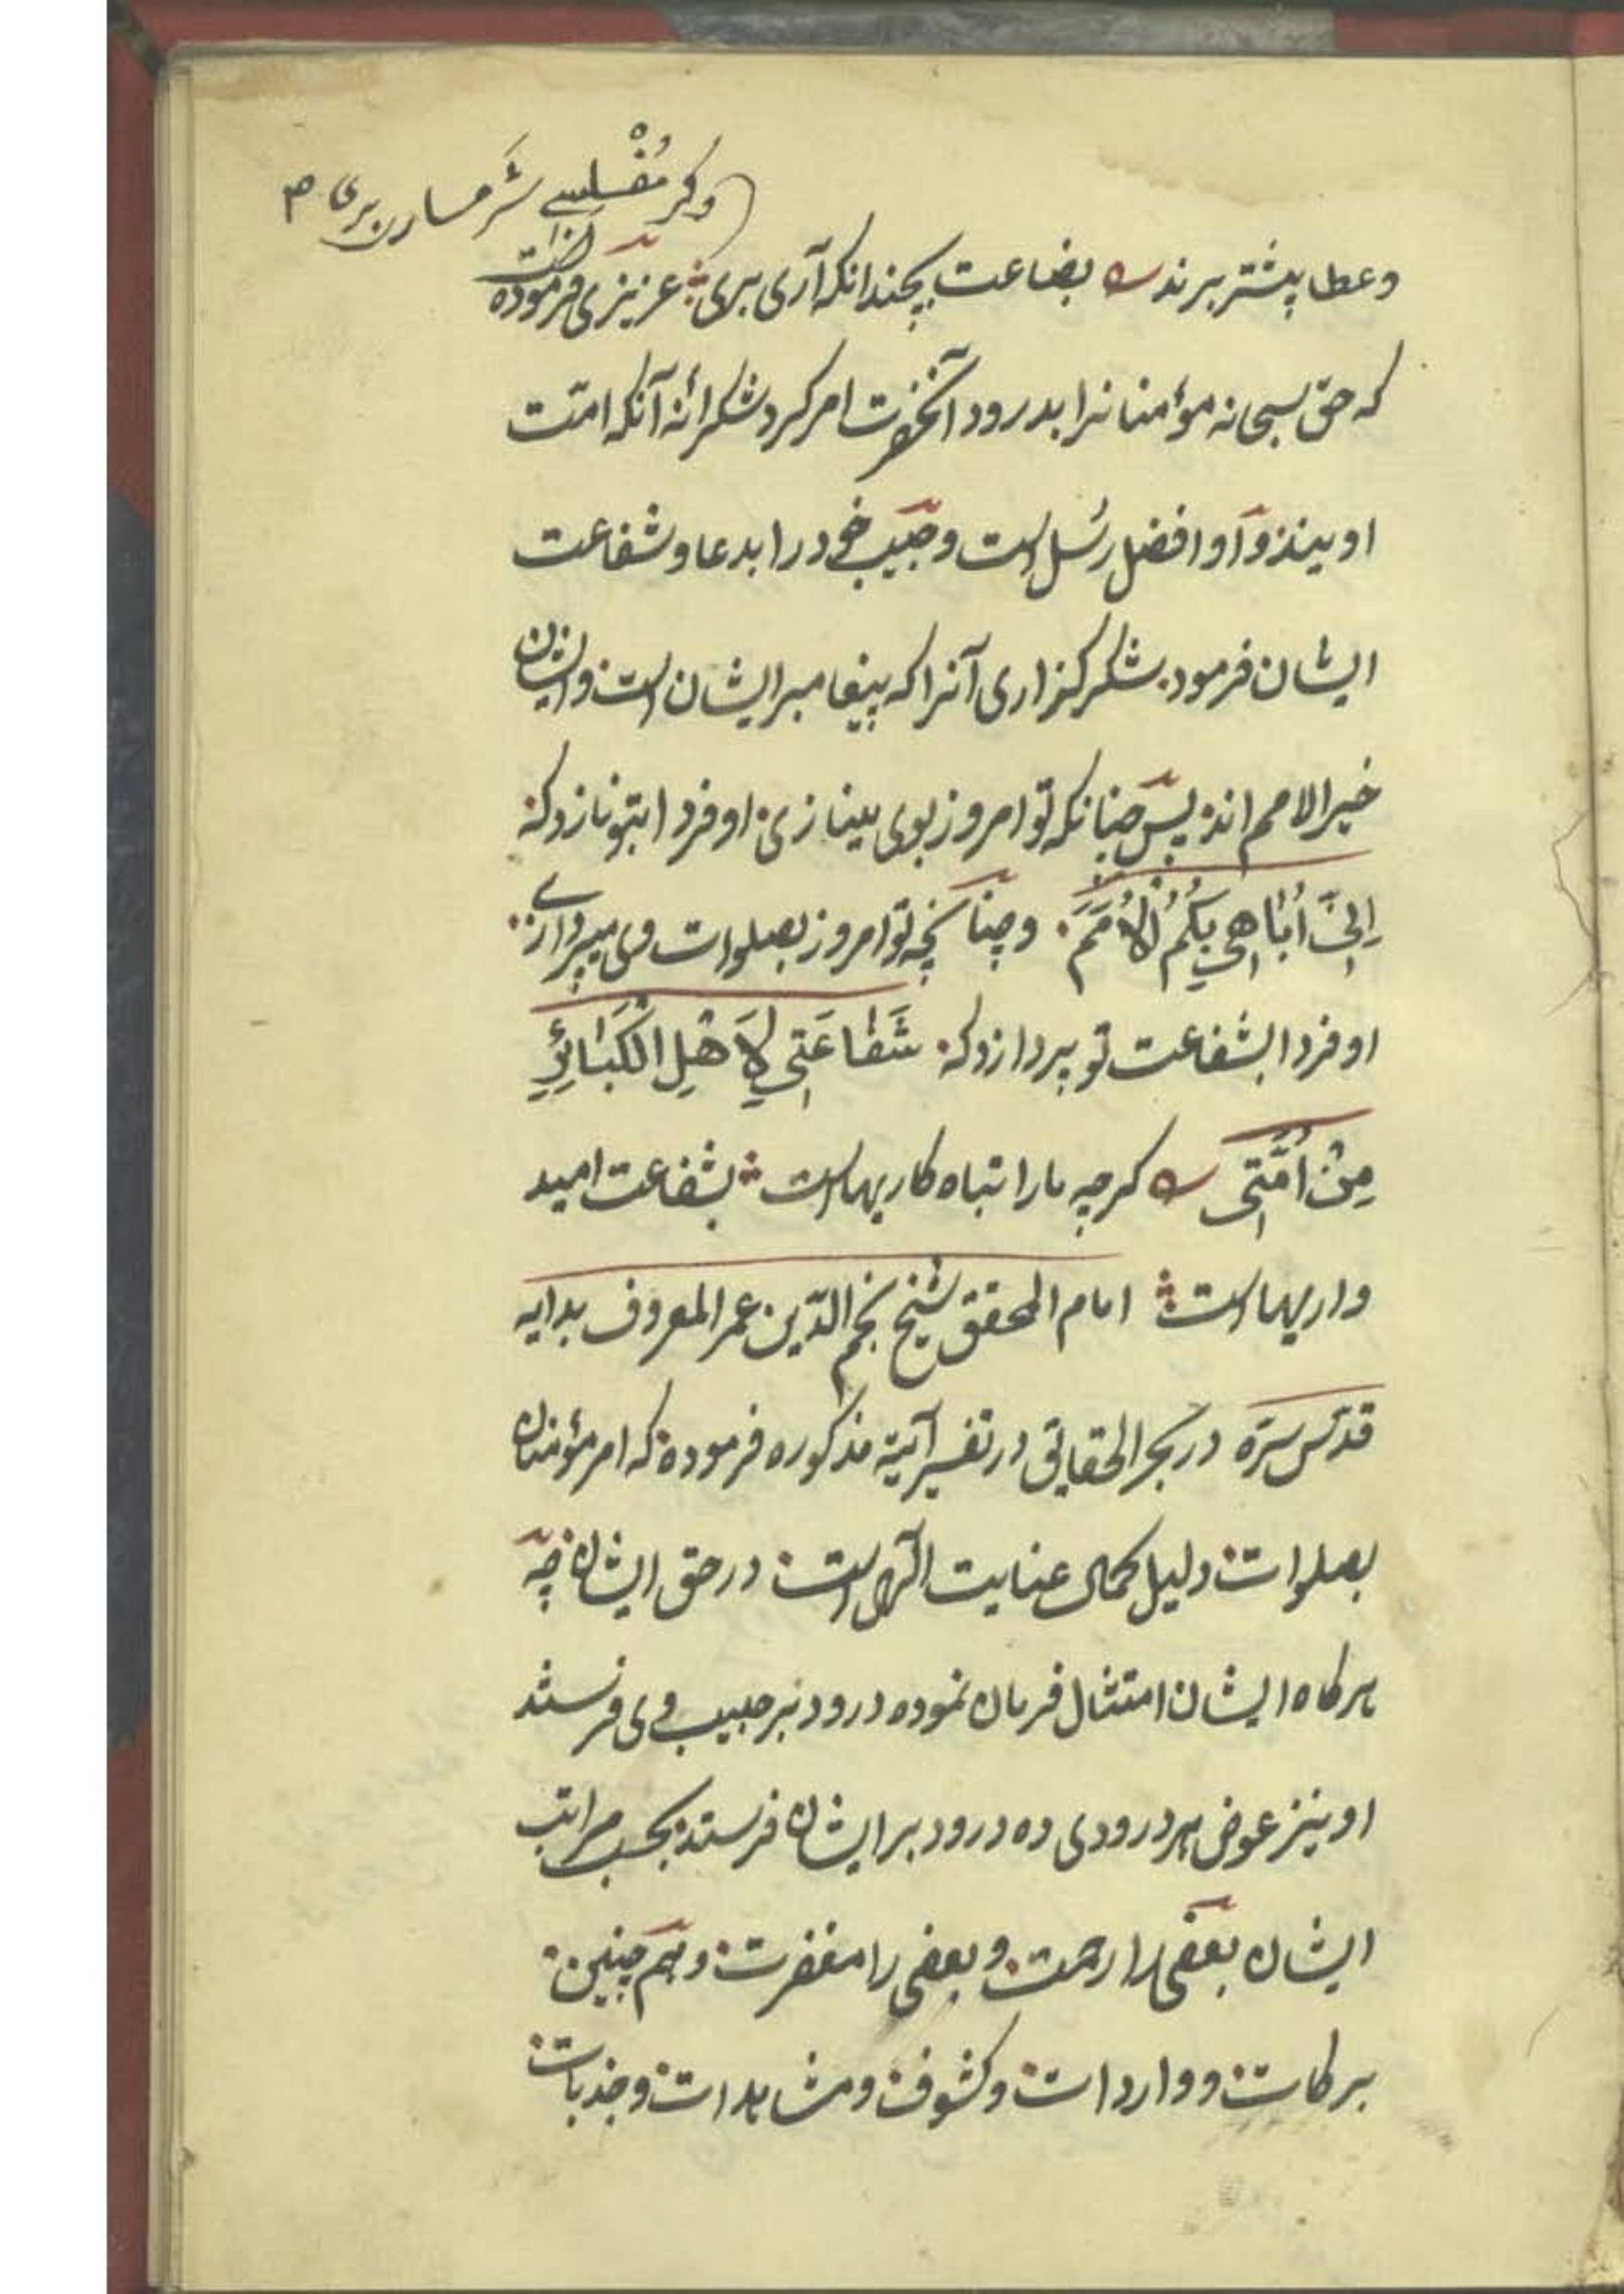 وکر مُفْلِسے شَرمساری بری
وعطا پیشتر برند بضاعت بچندانکه آری بری عزیزی فرموده است
که حق سبحانه مؤمنانرا بدرود آنحضرت امر کرد شکرانهٔ آنکه امّت
اویند و او افضل رُسل است و حبیب خود را بدعا و شفاعت
ایشان فرمود شکرکزاری آنرا که پیغامبر ایشان است و ایشان
خیر الامم اند پس چنانکه تو امروز بوی مینازی او فردا بتو نازد که
اِنّی اُبَاهِی بِکُمُ الْاُمَمَ و چنانچه تو امروز بصلوات وی میپردازے
او فردا بشفاعت تو پردازد که شَفَاعَتِی لِاَهْلِ الْکَبَائِرِ
مِنْ اُمَّتِی کرچه ما را تباه کاریها است بشفاعت امید
واریها است امام المحقق شیخ نجم الدّین عمر المعروف بدایه
قدّس سرّه در بحر الحقایق در تفسیر آیة مذکوره فرموده که امر مؤمنان
بصلوات دلیل کمال عنایت الٓهی است در حق ایشان چه
هرکاه ایشان امتثال فرمان نموده درود بر حبیب وی فرستند
او نیز عوض هر درودی ده درود بر ایشان فرستد بحسب مراتب
ایشان بعضی را رحمت و بعضی را مغفرت و هم چنین
برکات و واردات و کشوف و مشاهدات و جذبات